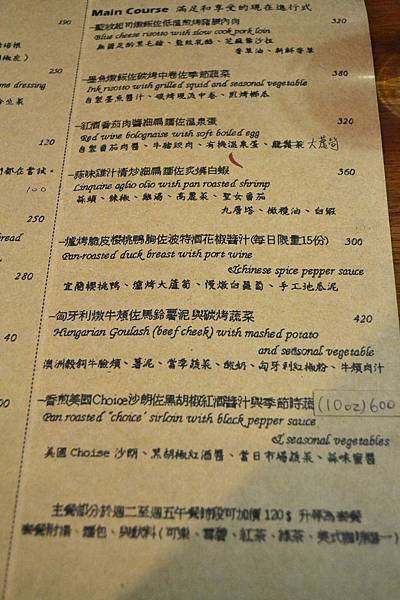 190
120
100
250
280
40
Main Course 滿足和享受的現在進行式
–藍紋起司燉飯佐低溫煎烤豬腰內肉 320
Blue cheese risotto with slow cook pork loin
–墨魚燉飯佐碳烤中卷佐季節蔬菜 380
Ink risotto with grilled squid and seasonal vegetable
自製墨魚醬汁、碳烤現流中卷、煎烤櫛瓜
–紅酒番茄肉醬細扁麵佐溫泉蛋 320
Red wine bolognaise with soft boiled egg
自製番茄肉醬、牛豬絞肉、有機溫泉蛋、龍鬚菜 大蘆筍
–蒜味雞汁清炒細扁麵佐炙燒白蝦 360
Linquine aglio olio with pan roasted shrimp
蒜頭、辣椒、雞湯、高麗菜、聖女番茄
九層塔、橄欖油、白蝦
–爐烤脆皮櫻桃鴨胸佐波特酒花椒醬汁(每日限量15份) 300
Pan-roasted duck breast with port wine
&chinese spice pepper sauce
宜蘭櫻桃鴨、爐烤大蘆筍、慢燉白蘿蔔、手工地瓜泥
–匈牙利燉牛頰佐馬鈴薯泥與碳烤蔬菜 420
Hungarian Goulash (beef cheek) with mashed potato
and seasonal vegetable
澳洲穀飼牛臉頰、薯泥、當季蔬菜、酸奶、匈牙利紅椒粉、牛頰肉汁
–香煎美國Choice沙朗佐黑胡椒紅酒醬汁與季節時蔬 (10oz) 600
Pan roasted "choice" sirloin with black pepper sauce
& seasonal vegetables
美國 Choise 沙朗、黑胡椒紅酒醬、當日市場蔬菜、蒜味蜜醬
主餐部分於週二至週五午餐時段可加價 120$ 升等為套餐
套餐附湯、麵包、與飲料(可樂、雪碧、紅茶、綠茶、美式咖啡擇一)